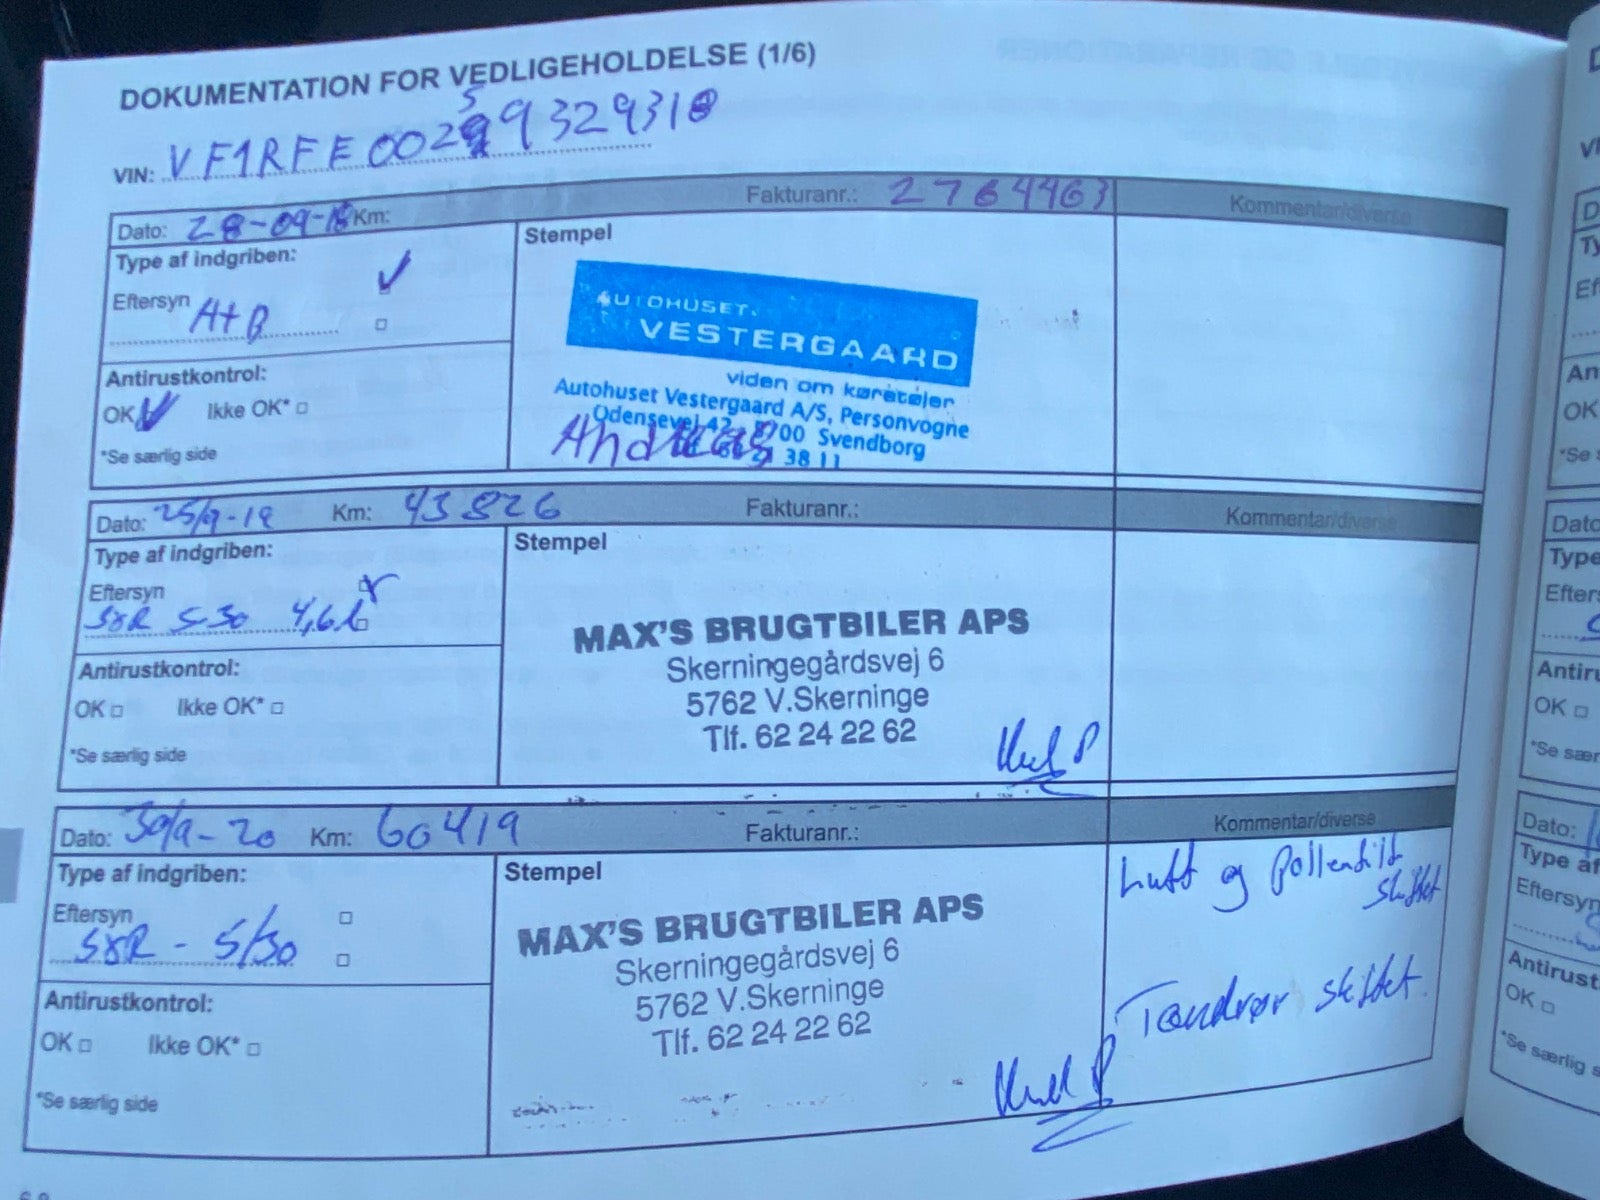 DOKUMENTATION FOR VEDLIGEHOLDELSE (1/6)
VIN: VF1RFE00259329318
Dato: 28-09-18 Km: Fakturanr.: 2764463 Kommentar/diverse
Type af indgriben: Stempel
Eftersyn A+B
AUTOHUSET
VESTERGAARD
viden om køretøjer
Autohuset Vestergaard A/S, Personvogne
Odensevej 42, 5700 Svendborg
21 38 11
Andreas
Antirustkontrol:
OK Ikke OK*
*Se særlig side
Dato: 25/9-19 Km: 43826 Fakturanr.: Kommentar/diverse
Type af indgriben: Stempel
Eftersyn
5W 5-30 4,6 L
MAX'S BRUGTBILER APS
Skerningegårdsvej 6
5762 V.Skerninge
Tlf. 62 24 22 62
Antirustkontrol:
OK Ikke OK*
*Se særlig side
Dato: 30/9-20 Km: 60419 Fakturanr.: Kommentar/diverse
Type af indgriben: Stempel
Eftersyn
5/30
MAX'S BRUGTBILER APS
Skerningegårdsvej 6
5762 V.Skerninge
Tlf. 62 24 22 62
Luft og pollenfilt
skiftet
Tændrør skiftet.
Antirustkontrol:
OK Ikke OK*
*Se særlig side
Dato:
Type af
Eftersyn
Antirust
OK
*Se særlig s